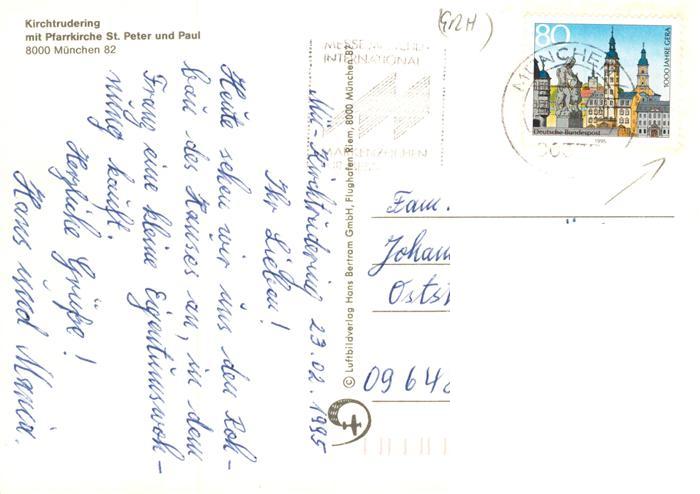 Kirchtrudering
mit Pfarrkirche St. Peter und Paul
8000 München 82
Mü-Kirchtrudering 23.02.1995
Ihr Lieben!
Heute sehen wir uns den Roh-
bau des Hauses an, in dem
Franz eine kleine Eigentumswoh-
nung kauft.
Herzliche Grüße!
Hans und Maria.
© Luftbildverlag Hans Bertram GmbH, Flughafen Riem, 8000 München 87
(GRH)
MESSE MÜNCHEN
INTERNATIONAL
MARKENZEICHEN
80
1000 JAHRE GERA
Deutsche Bundespost
1995
MÜNCHEN
Fam.
Johan
Ostst
09648